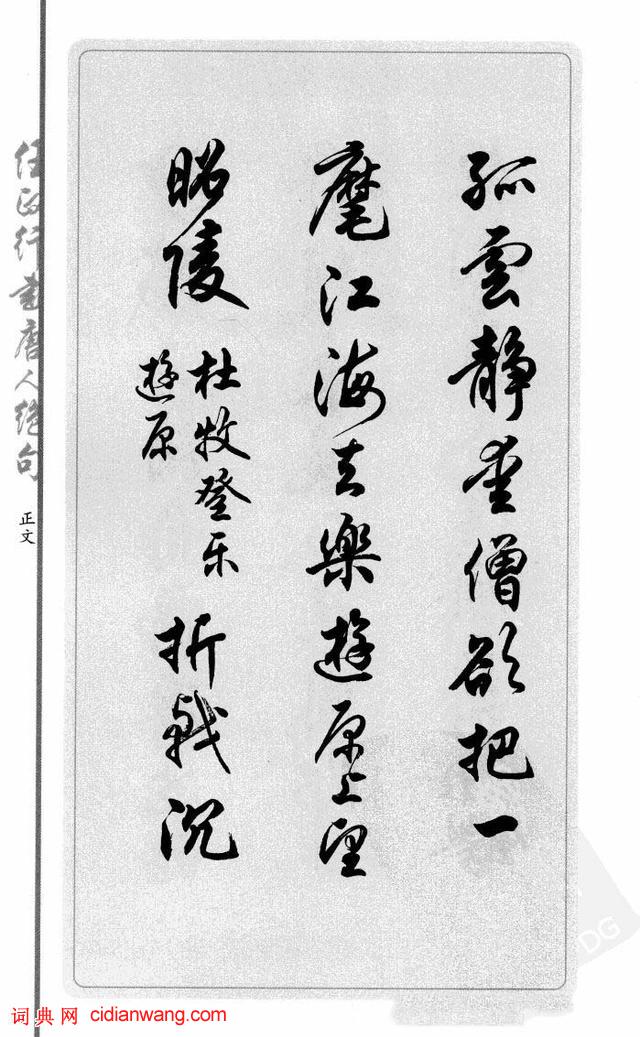 孤雲静愛僧欲把一
麾江海去樂遊原上望
昭陵
杜牧登乐
遊原
折戟沉
任政行書唐人絕句
正文
词典网 cidianwang.com
DG